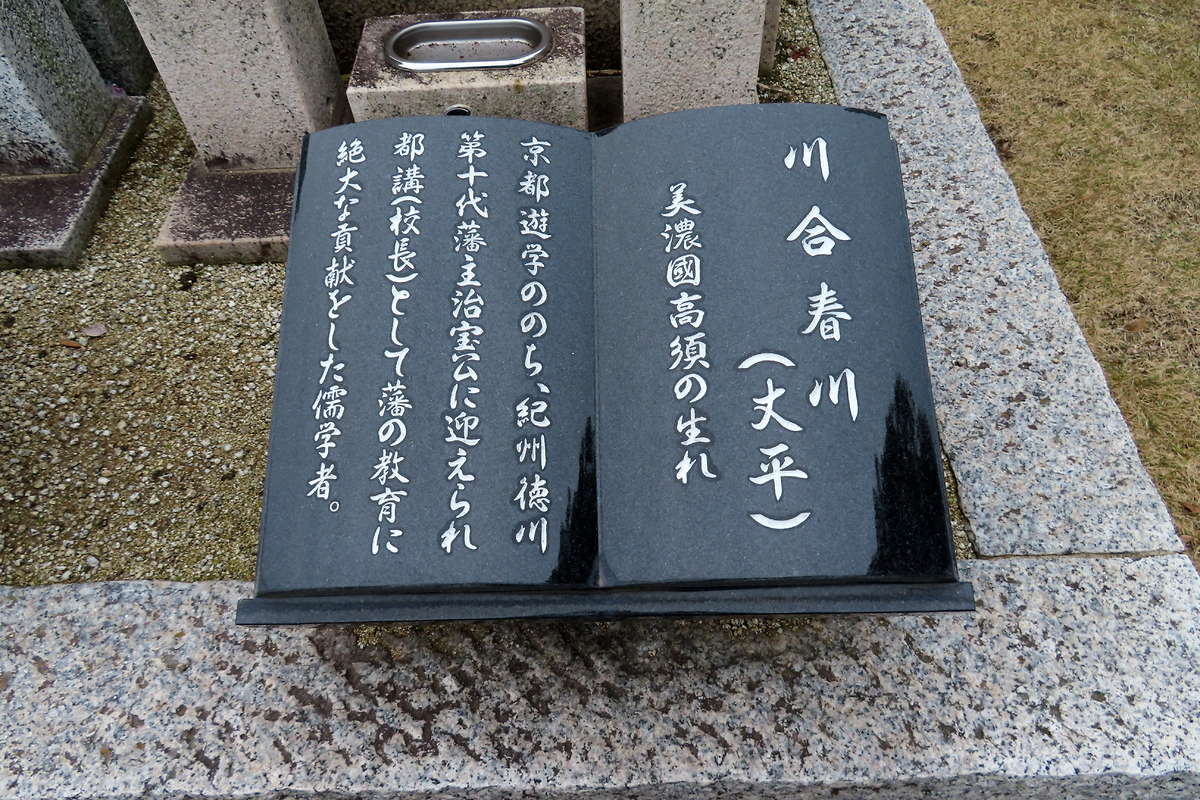 川合春川
（丈平）
美濃國高須の生れ
京都遊学ののち、紀州徳川
第十代藩主治宝公に迎えられ
都講（校長）として藩の教育に
絶大な貢献をした儒学者。